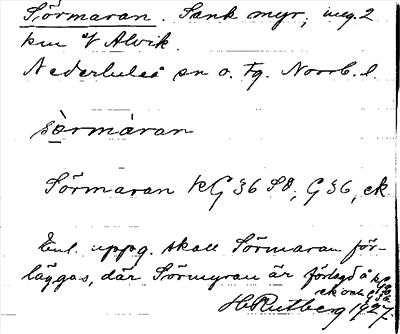 Sörmaran. Sank myr, meg. 2
km V Alvik.
Nederluleå sn o. tg. Norrb. l.
sörmaran
Sörmaran KG 36 SO, G 36, ek
Enl. uppg. skall Sörmaran för-
läggas, där Sörmyran är förlagd å
ek och
H. Rutberg 1927.